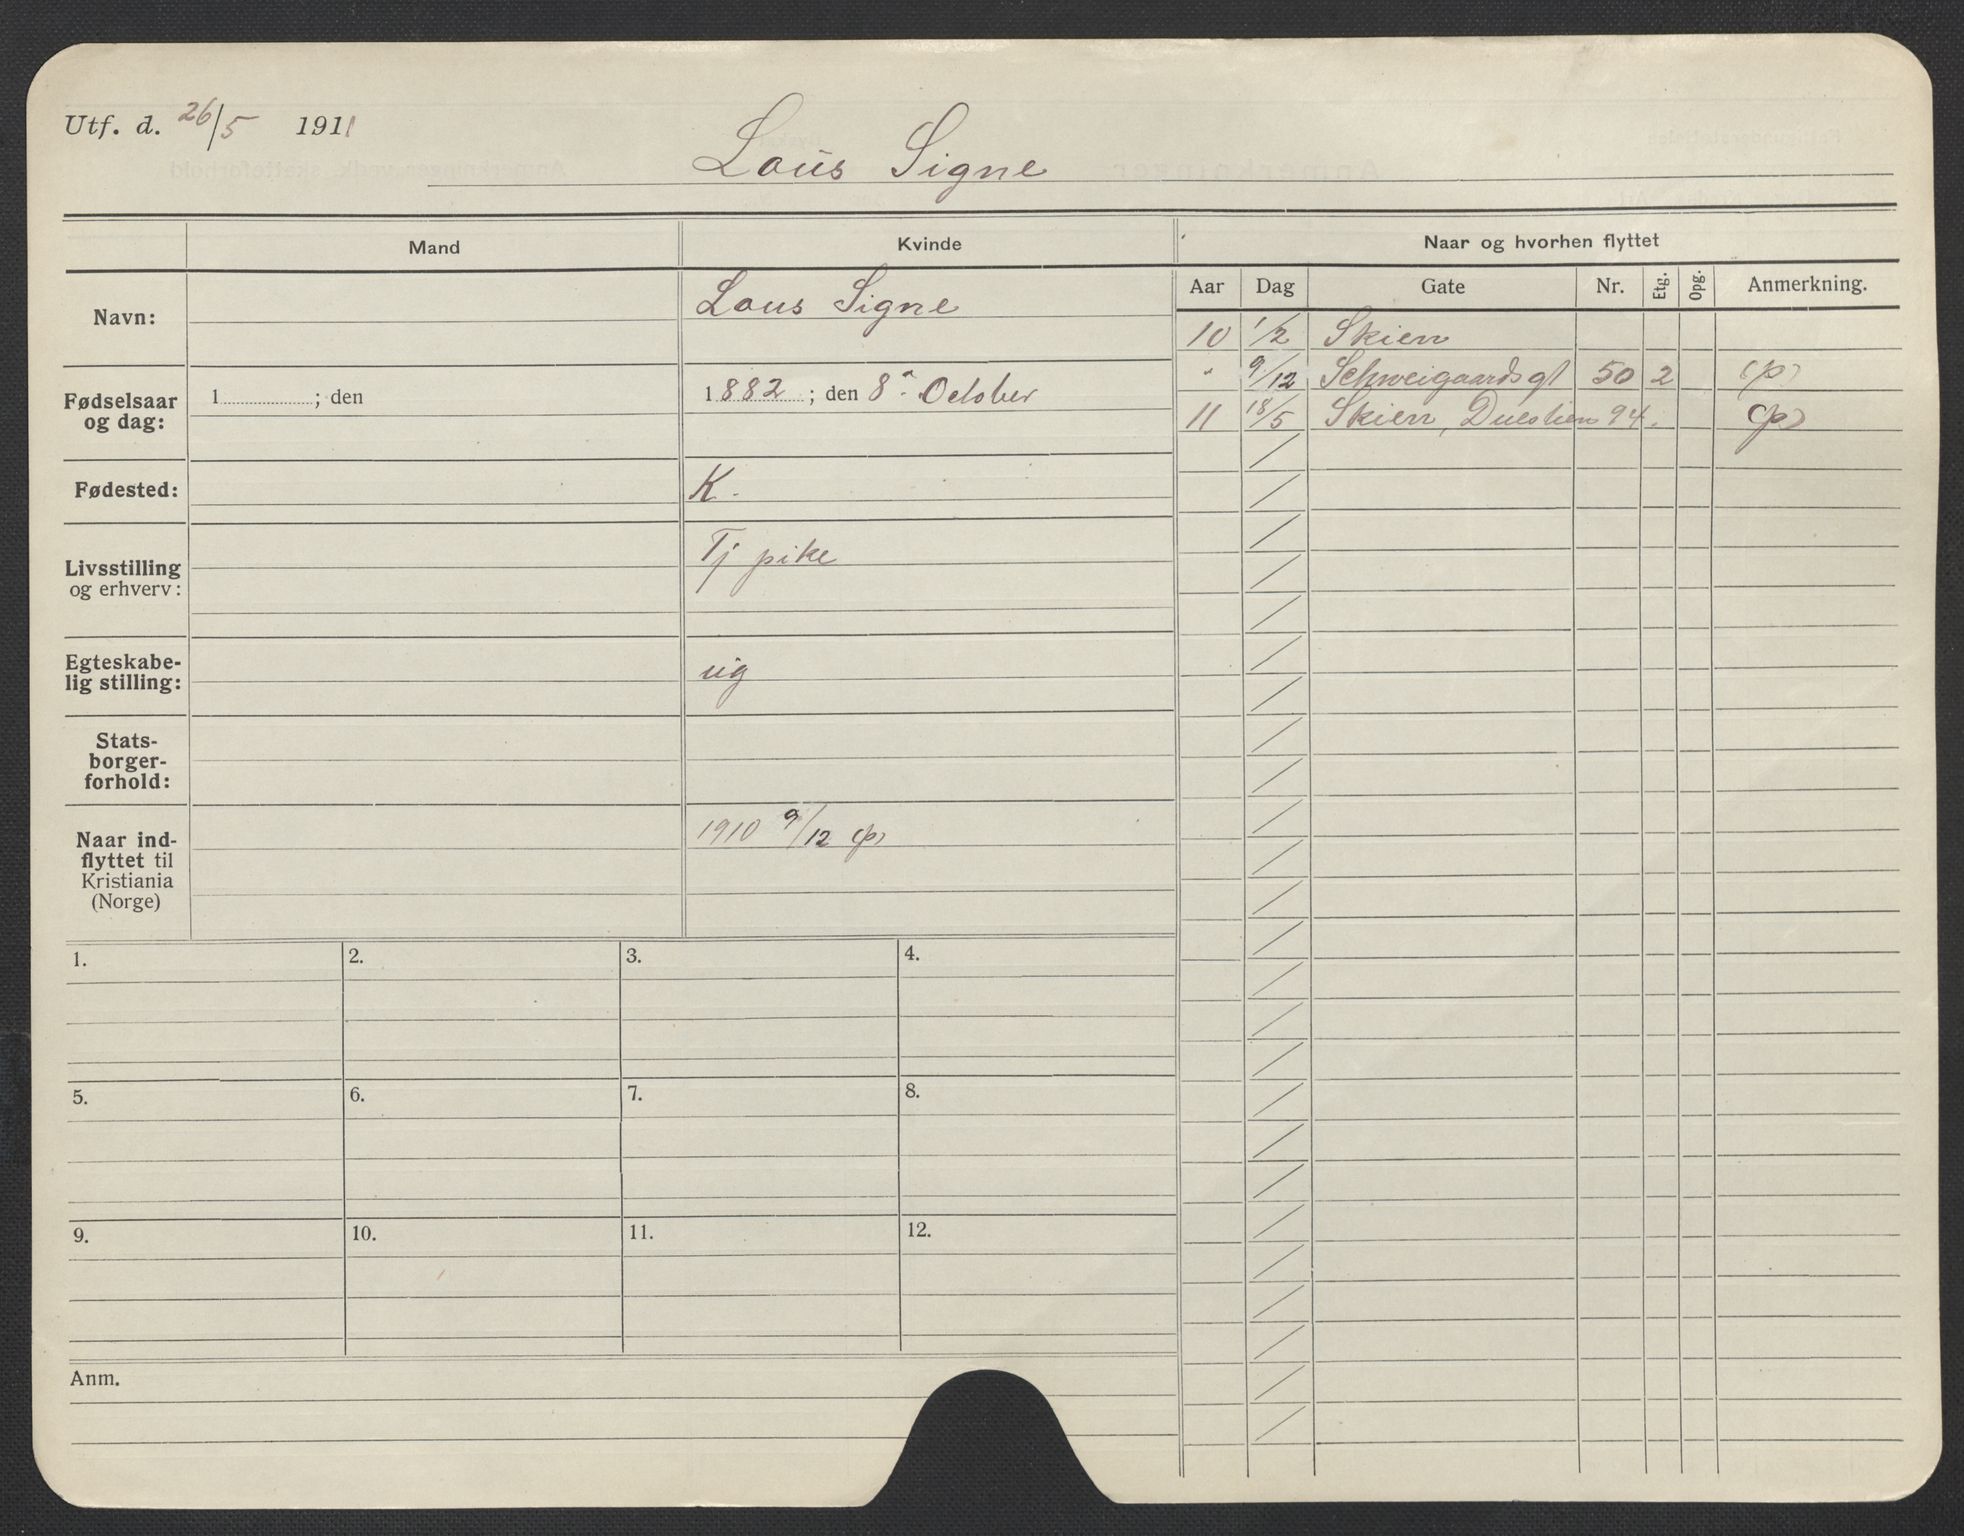 Utf. d. 26/5 1911
Loüs Signe
Mand
Kvinde
Naar og hvorhen flyttet
Aar Dag Gate Nr. Etg. Opg. Anmerkning.
Navn:
Lous Signe
10 1/2 Skien
" 9/12 Schweigaardsgt 50 2 (p)
11 18/5 Skien, 94. (p)
Fødselsaar
og dag:
1 ; den
1882 ; den 8de October
Fødested:
K.
Livsstilling
og erhverv:
Tj pike
Egteskabe-
lig stilling:
ug
Stats-
borger-
forhold:
Naar ind-
flyttet til
Kristiania
(Norge)
1910 9/12 (p)
1. 2. 3. 4.
5. 6. 7. 8.
9. 10. 11. 12.
Anm.